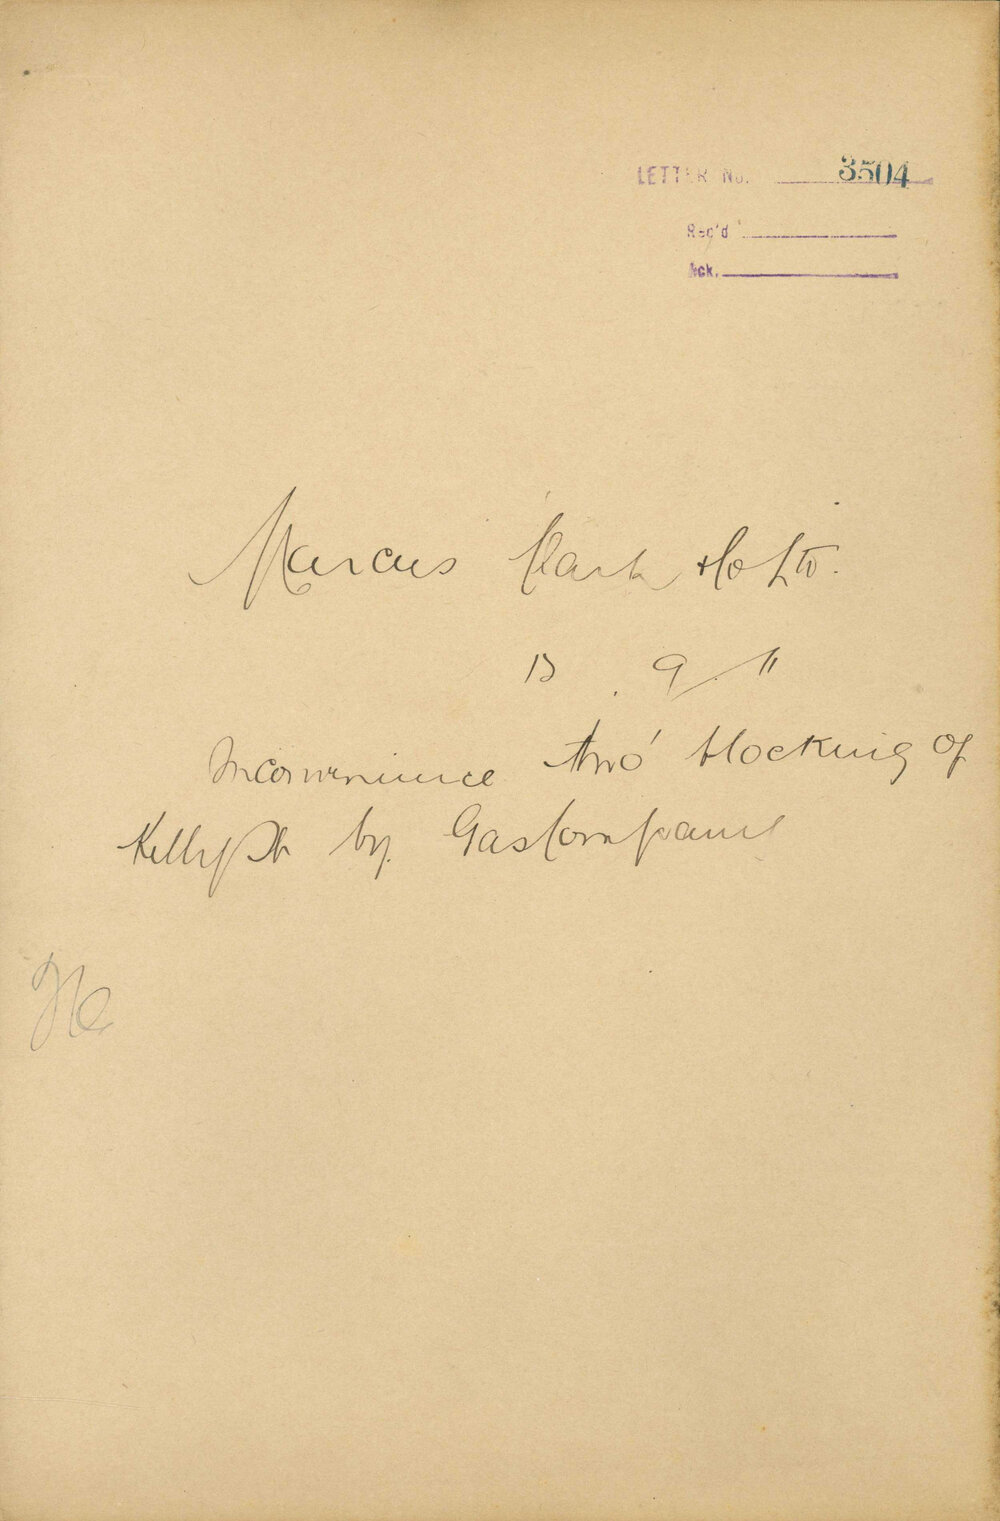 LETTER No. 3504
Rec'd
Ack.
Marcus Clark & Co Ltd.
13 . 9 . 11
Inconvenience thro' blocking of
Kelly St by Gas Company